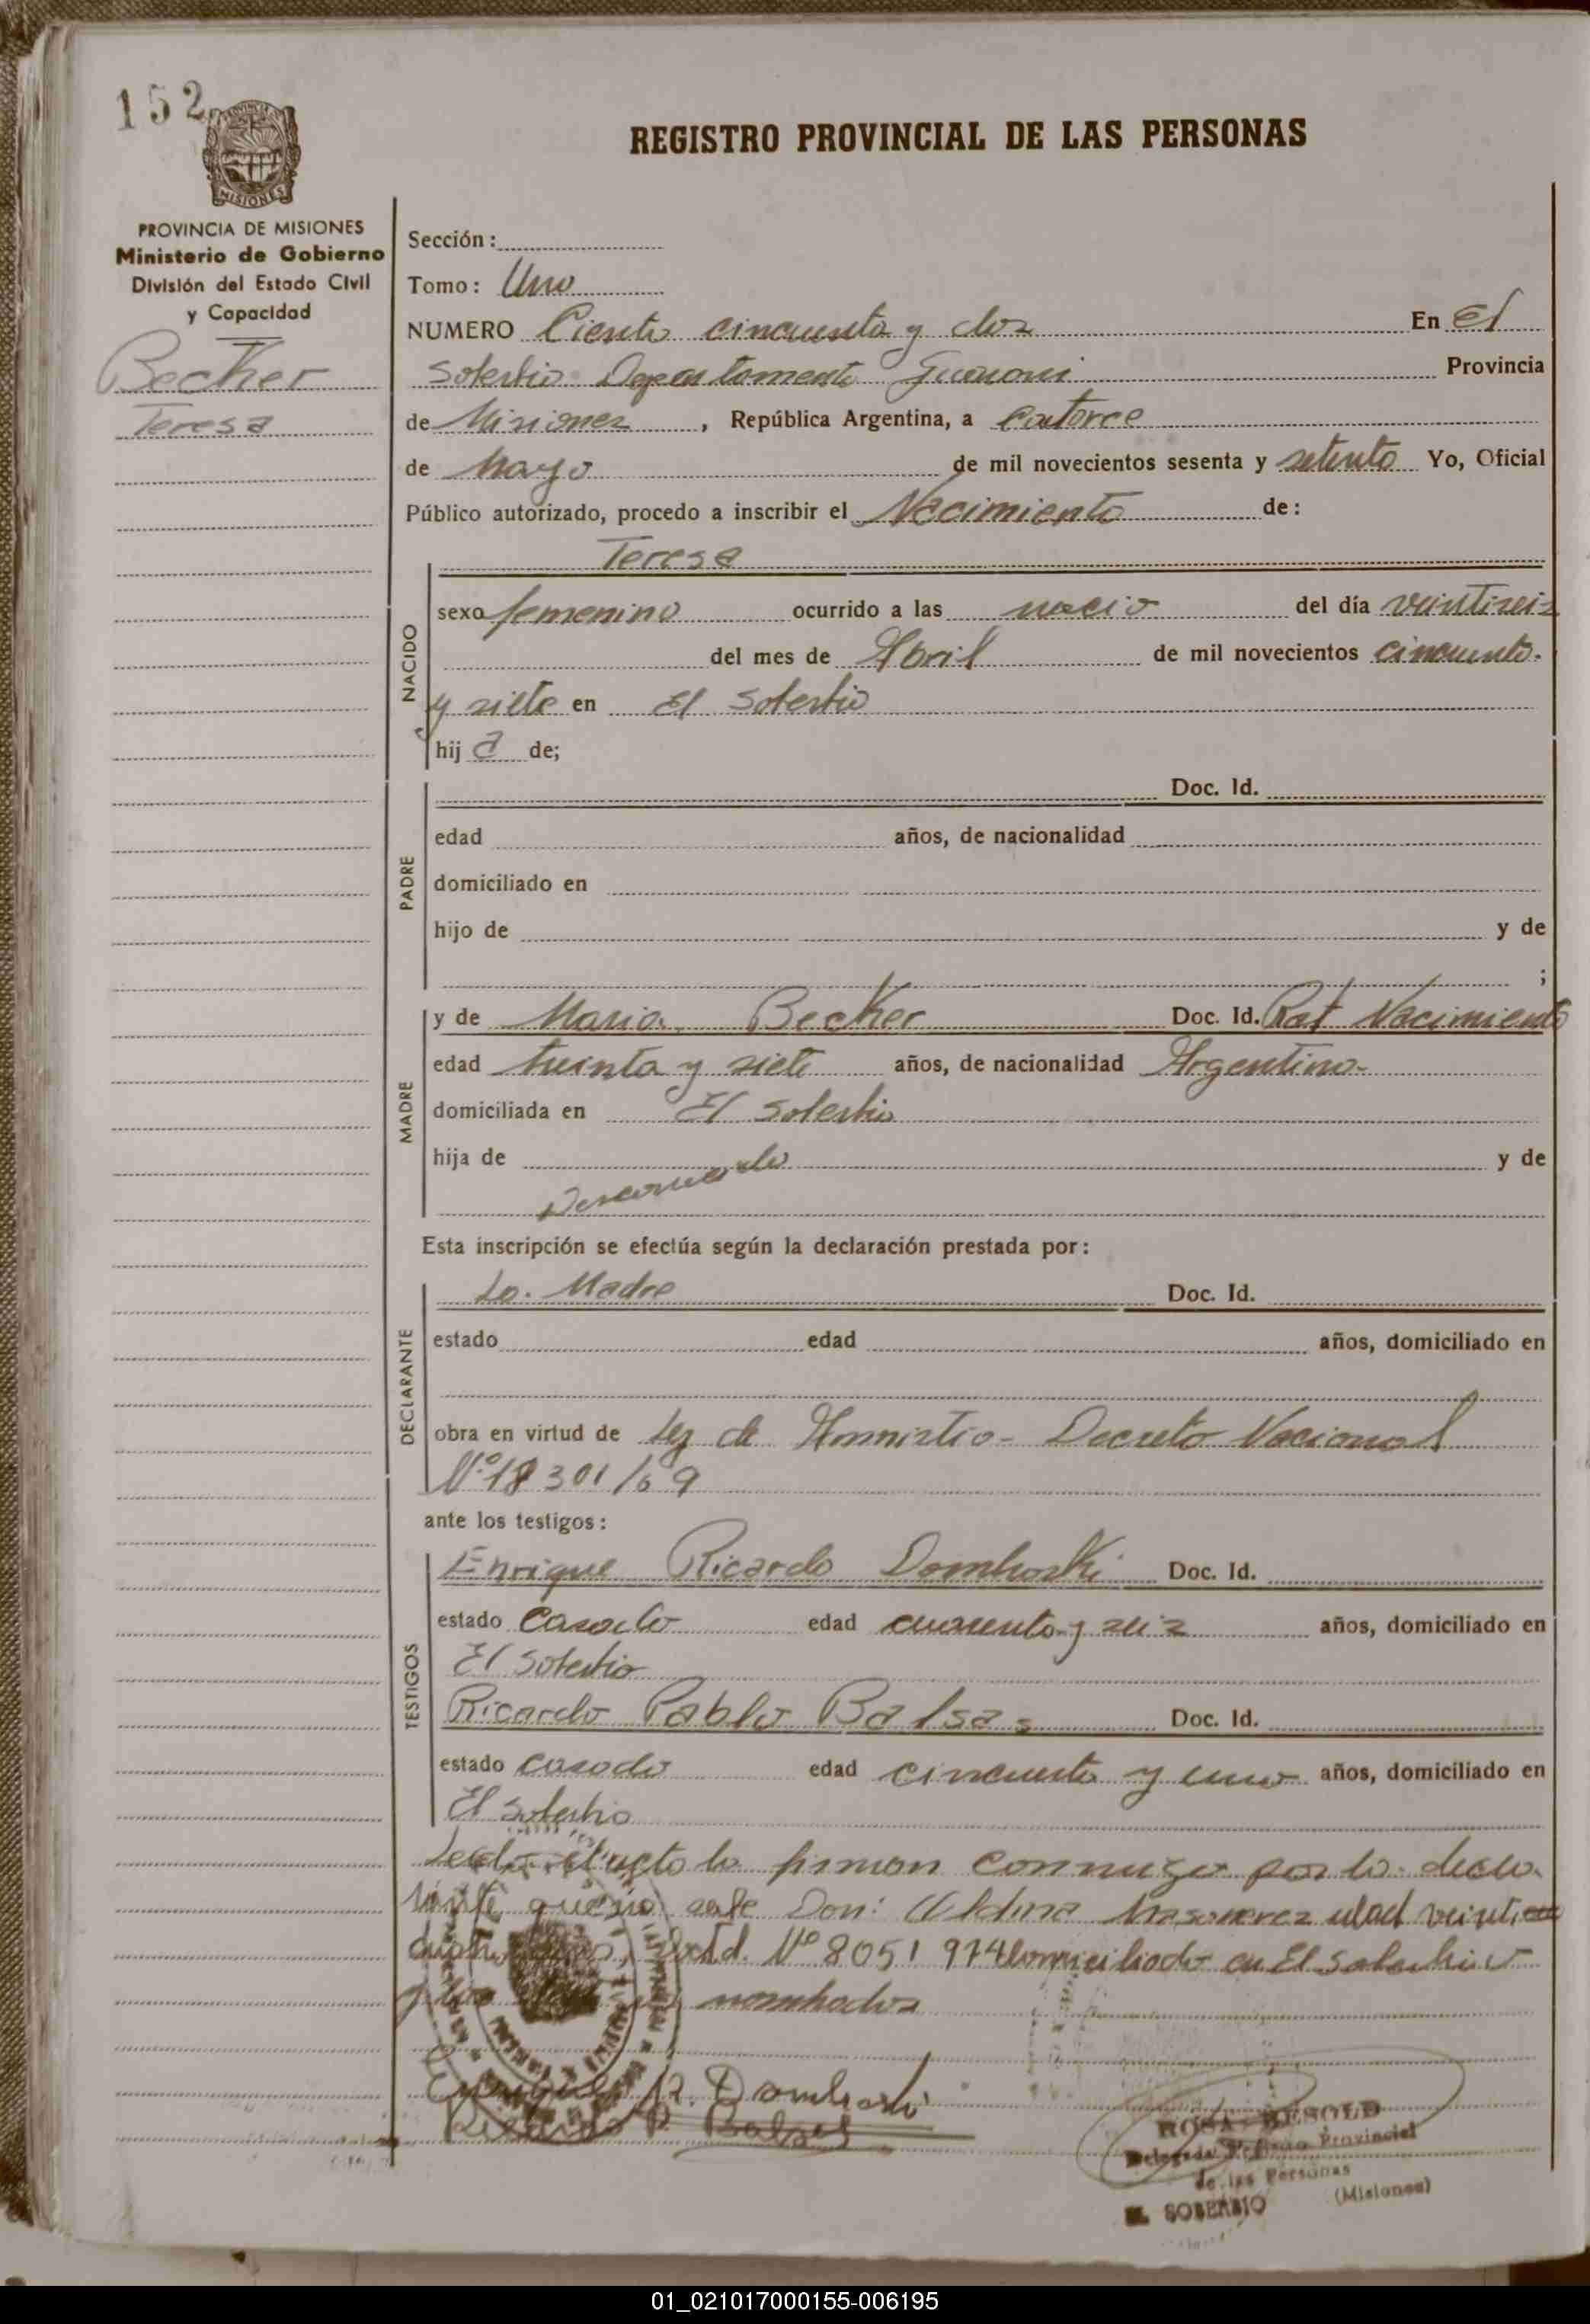 152
PROVINCIA DE MISIONES
Ministerio de Gobierno
División del Estado Civil
y Capacidad
Becker
Teresa
REGISTRO PROVINCIAL DE LAS PERSONAS
Sección:
Tomo: Uno
NUMERO Ciento cincuenta y dos En El
Soberbio Departamento Guarani Provincia
de Misiones, República Argentina, a Catorce
de Mayo de mil novecientos sesenta y setenta Yo, Oficial
Público autorizado, procedo a inscribir el Nacimiento de:
Teresa
NACIDO
sexo femenino ocurrido a las nacio del día veintiseis
del mes de Abril de mil novecientos cincuenta
y siete en El Soberbio
hij a de;
PADRE
Doc. Id.
edad años, de nacionalidad
domiciliado en
hijo de y de
;
MADRE
y de Maria Becker Doc. Id. Nacimiento
edad treinta y siete años, de nacionalidad Argentina
domiciliada en El Soberbio
hija de y de
Desconocido
Esta inscripción se efectúa según la declaración prestada por:
DECLARANTE
La Madre Doc. Id.
estado edad años, domiciliado en
obra en virtud de Ley de Amnistia - Decreto Nacional
Nº 18301/69
ante los testigos:
TESTIGOS
Enrique Ricardo Dombroski Doc. Id.
estado Casado edad cuarenta y seis años, domiciliado en
El Soberbio
Ricardo Pablo Balsas Doc. Id.
estado casado edad cincuenta y uno años, domiciliado en
El Soberbio
Leida el acta la firman conmigo por la decla
rante que no sabe Don: edad veinti
cuatro años, Doc Id. Nº 8051974 domiciliado en El Soberbio
y los nombrados
Enrique R. Dombroski
Ricardo P. Balsas
Delegada Registro Provincial
de las Personas
EL SOBERBIO (Misiones)
01_021017000155-006195